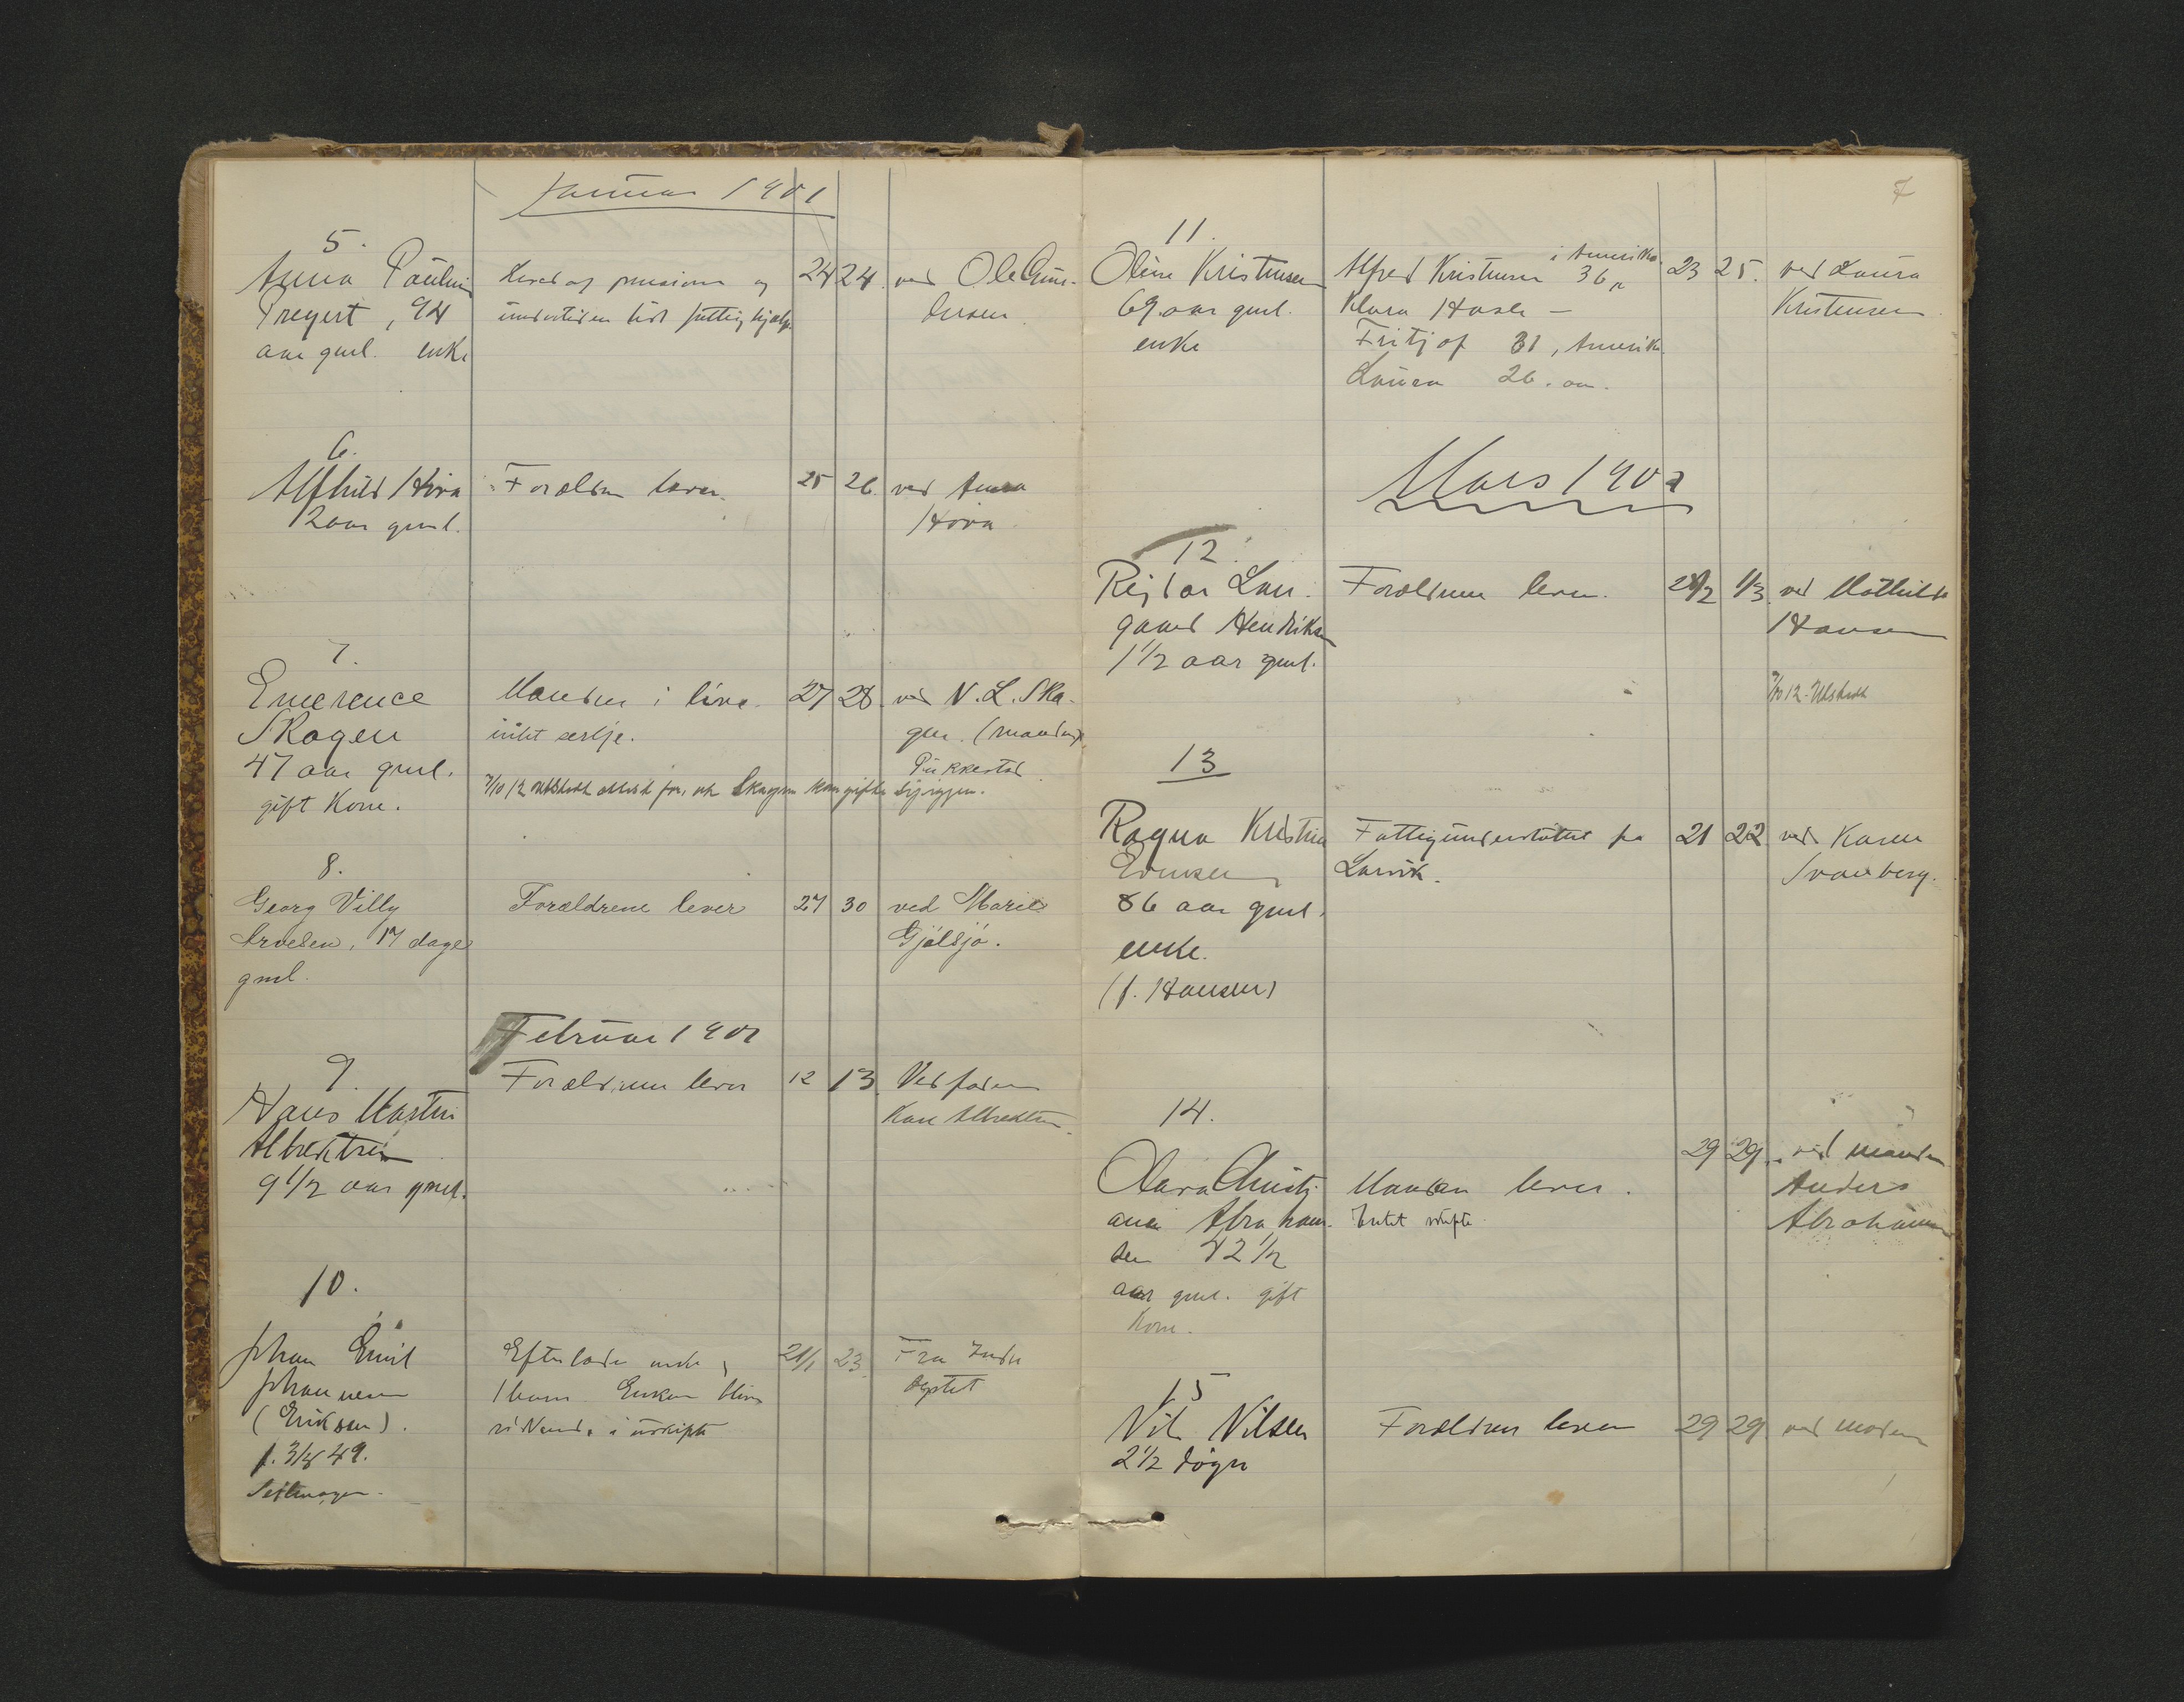 Januar 1901
5.
Anna Paulin
Pregert, 94
aar gml. enke
Levet af pension og
undertiden lidt fattighjælp.
24 24 ved Ole Gun-
dersen
6.
Alfhild Hova
2 aar gml.
Forældrene lever.
25 26. ved Anna
Hova
7.
Emerence
Skogen
47 aar gml.
gift Kone.
Manden i live.
intet
27 28. ved N. L. Ska-
gen. (manden)
Pukkestad
7/10 12 Utstedt attest for, at Skagen kan gifte sig igjen.
8.
Georg Villy
Arvesen, 17 dage
gml.
Forældrene lever
27 30 ved Marie
Gjølsjø.
Februar 1901
9.
Hans Martin
Albrektsen
9 1/2 aar gml.
Forældrene lever
12 13 Ved faderen
Karl Albrektsen.
10.
Johan Emil
Johannesen
(Eriksen).
f. 3/8 49.
Efterlader enke og
1 barn. Enken blir
i uskifte
21/1 23 Fra Indre
7
11.
Oline Kristensen
69. aar gml.
enke
i Amerika
Alfred Kristensen 36
Klara Hasle —
Fritjof 31, Amerika
Laura 26. aar.
23 25. ved Laura
Kristensen
Mars 1901
12.
Reidar Lau-
gaard Hendriksen
1 1/2 aar gml.
Forældrene lever.
28/2 1/3. ved Mathilde
Hansen
7/10 12 - Utstedt
13
Ragna Kristine
Evensen
86 aar gml.
enke.
(f. Hansen)
Fattigunderstøttet fra
Larvik.
21 22 ved Karen
Svanberg.
14.
Clara Christi-
ana Abraham-
sen 42 1/2
aar gml. gift
Kone.
Manden lever.
Intet skifte.
29 29. ved manden
Anders
Abrahamsen
15
Nils Nilsen
2 1/2 døgn
Forældrene lever
29 29 ved moderen